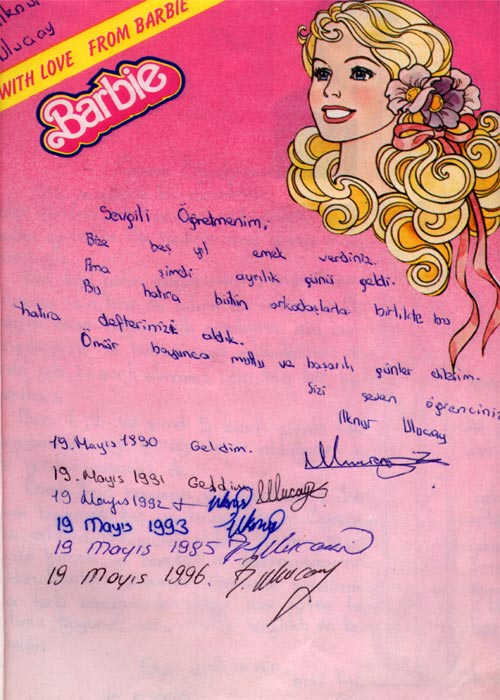 İlknur
Ulucay
WITH LOVE FROM BARBIE
Barbie
Sevgili Öğretmenim;
Bize beş yıl emek verdiniz.
Ama şimdi ayrılık günü geldi.
Bu hatıra bütün arkadaşlarla birlikte bu
hatıra defterinizi aldık.
Ömür boyunca mutlu ve başarılı günler dilerim.
Sizi seven öğrenciniz
İlknur Ulucay
19. Mayıs 1990 Geldim.
19. Mayıs 1991 Geldim
19 Mayıs 1992
19 Mayıs 1993
19 Mayıs 1985
19 Mayıs 1996.